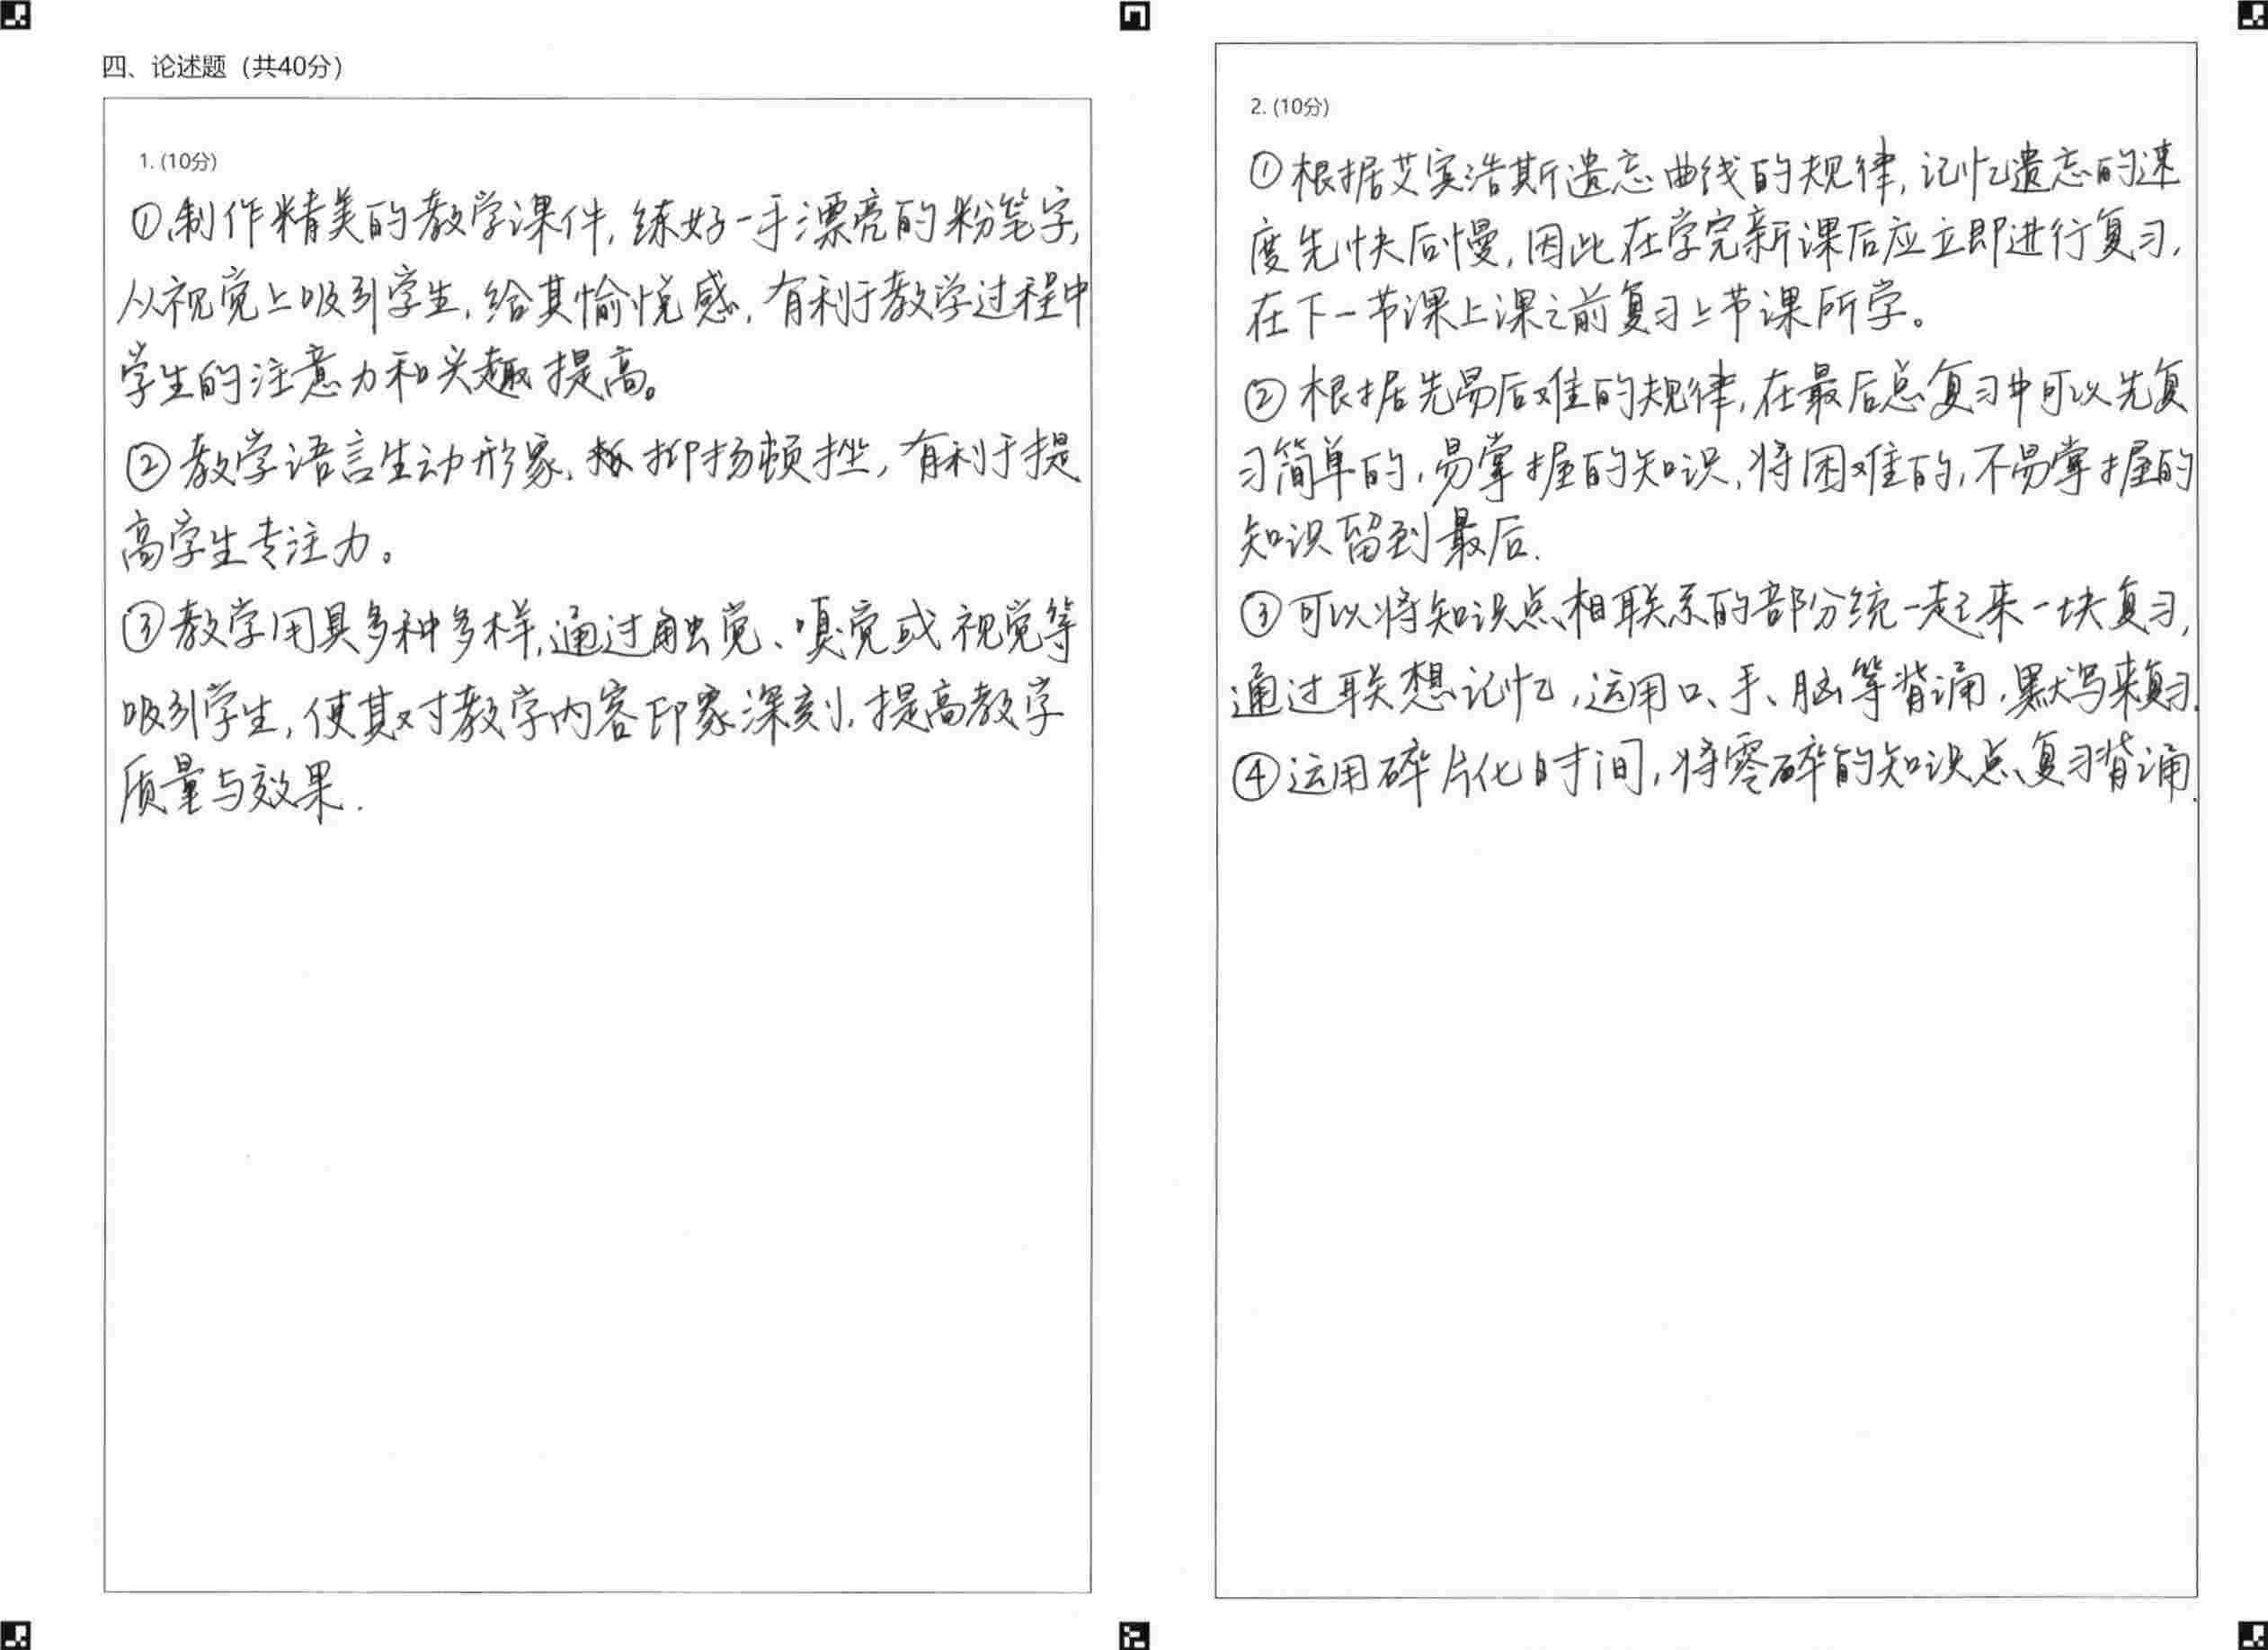 四、论述题（共40分）
1. (10分)
①制作精美的教学课件,练好一手漂亮的粉笔字,
从视觉上吸引学生,给其愉悦感,有利于教学过程中
学生的注意力和兴趣提高。
②教学语言生动形象、抑扬顿挫,有利于提
高学生专注力。
③教学用具多种多样,通过触觉、嗅觉或视觉等
吸引学生,使其对教学内容印象深刻,提高教学
质量与效果.
2. (10分)
①根据艾宾浩斯遗忘曲线的规律,记忆遗忘的速
度先快后慢,因此在学完新课后应立即进行复习,
在下一节课上课之前复习上节课所学。
②根据先易后难的规律,在最后总复习中可以先复
习简单的,易掌握的知识,将困难的,不易掌握的
知识留到最后.
③可以将知识点相联系的部分统一起来一块复习,
通过联想记忆,运用口、手、脑等背诵,默写来复习.
④运用碎片化时间,将零碎的知识点复习背诵.